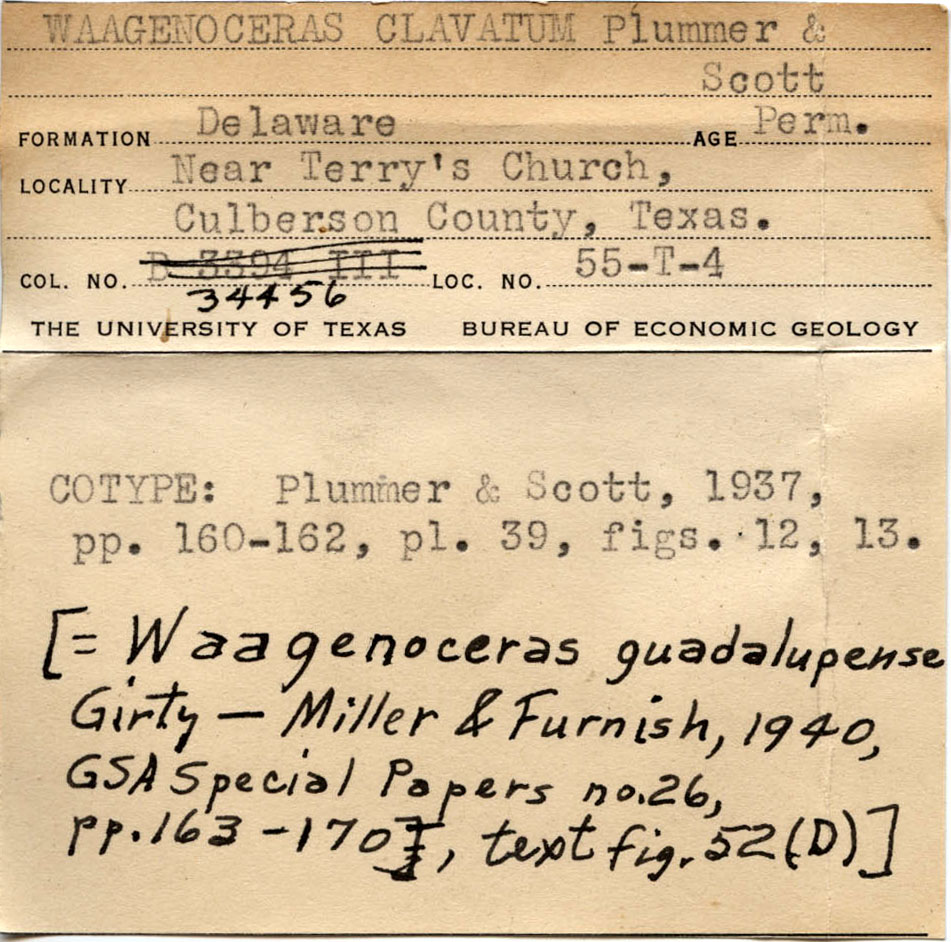 WAAGENOCERAS CLAVATUM Plummer &
Scott
FORMATION Delaware AGE Perm.
LOCALITY Near Terry's Church,
Culberson County, Texas.
COL. NO. B 3394 III LOC. NO. 55-T-4
34456
THE UNIVERSITY OF TEXAS BUREAU OF ECONOMIC GEOLOGY
COTYPE: Plummer & Scott, 1937,
pp. 160-162, pl. 39, figs. 12, 13.
[= Waagenoceras guadalupense
Girty — Miller & Furnish, 1940,
GSA Special Papers no.26,
pp.163-170, text fig. 52(D)]